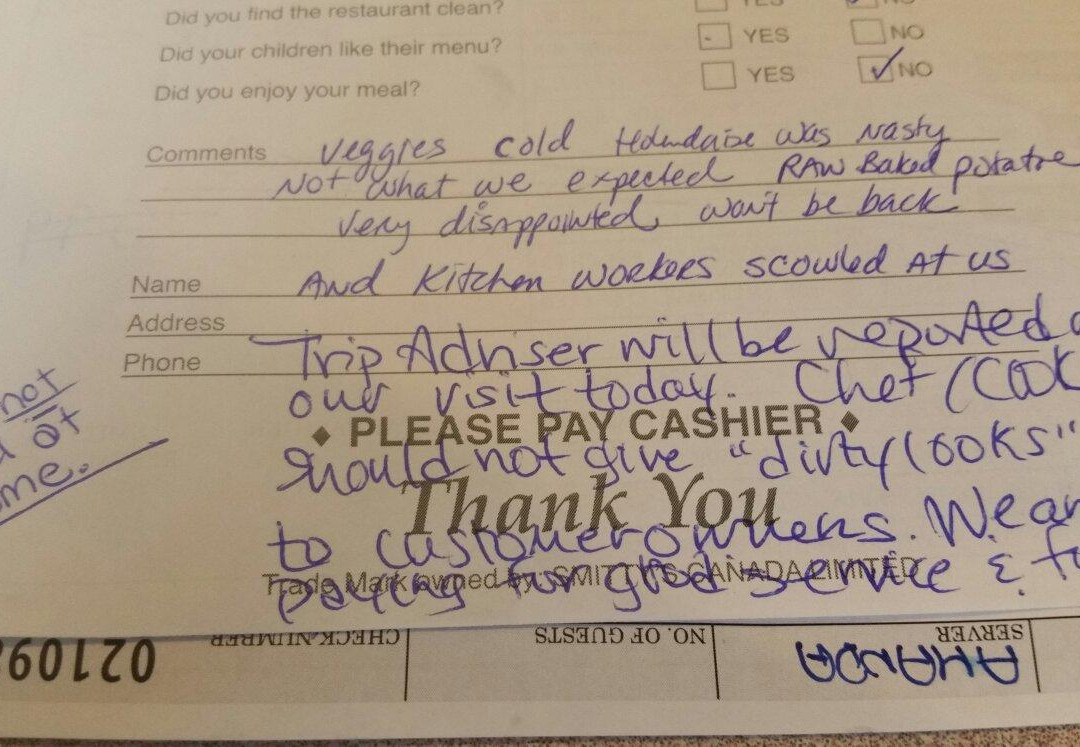 Did you find the restaurant clean? YES NO
Did your children like their menu? YES NO
Did you enjoy your meal? YES NO
Comments veggies cold Holendaise was nasty
Not what we expected RAW Baked potatoe
Very disappointed, won't be back
Name And Kitchen workers scowled At us
Address
Phone Trip Adviser will be reported
our visit today. Chef (COOK
not
at
me.
♦ PLEASE PAY CASHIER ♦
should not give "dirty looks"
Thank You
to customer owners. We ar
Trade Mark owned by SMITTY'S CANADA LIMITED
paying for good service & f
02109
CHECK NUMBER
NO. OF GUESTS
SERVER
AMANDA